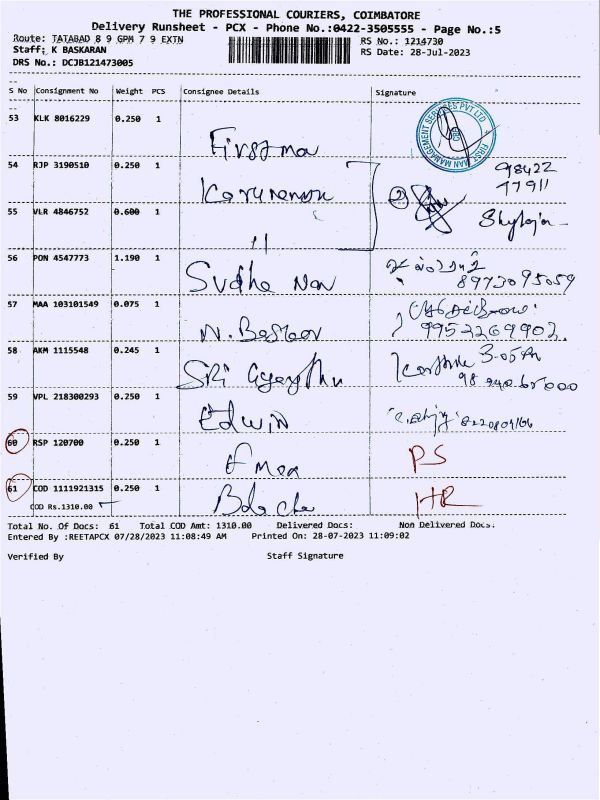 THE PROFESSIONAL COURIERS, COIMBATORE
Delivery Runsheet - PCX - Phone No.:0422-3505555 - Page No.:5
Route: TATABAD 8 9 GPM 7 9 EXTN
RS No.: 1214730
Staff: K BASKARAN
RS Date: 28-Jul-2023
DRS No.: DCJB121473005
S No Consignment No Weight PCS Consignee Details Signature
53 KLK 8016229 0.250 1 Firstman
FIRST MAN MANAGEMENT SERVICES PVT LTD
54 RJP 3190510 0.250 1
98422
77911
55 VLR 4846752 0.600 1 11
56 PON 4547773 1.190 1 Sudha
8973095059
57 MAA 103101549 0.075 1
9952269902
58 AKM 1115548 0.245 1 SRi
59 VPL 218300293 0.250 1 Edwin
60 RSP 120700 0.250 1 PS
61 COD 1111921315 0.250 1 HR
COD Rs.1310.00
Total No. Of Docs: 61 Total COD Amt: 1310.00 Delivered Docs: Non Delivered Docs:
Entered By :REETAPCX 07/28/2023 11:08:49 AM Printed On: 28-07-2023 11:09:02
Verified By Staff Signature